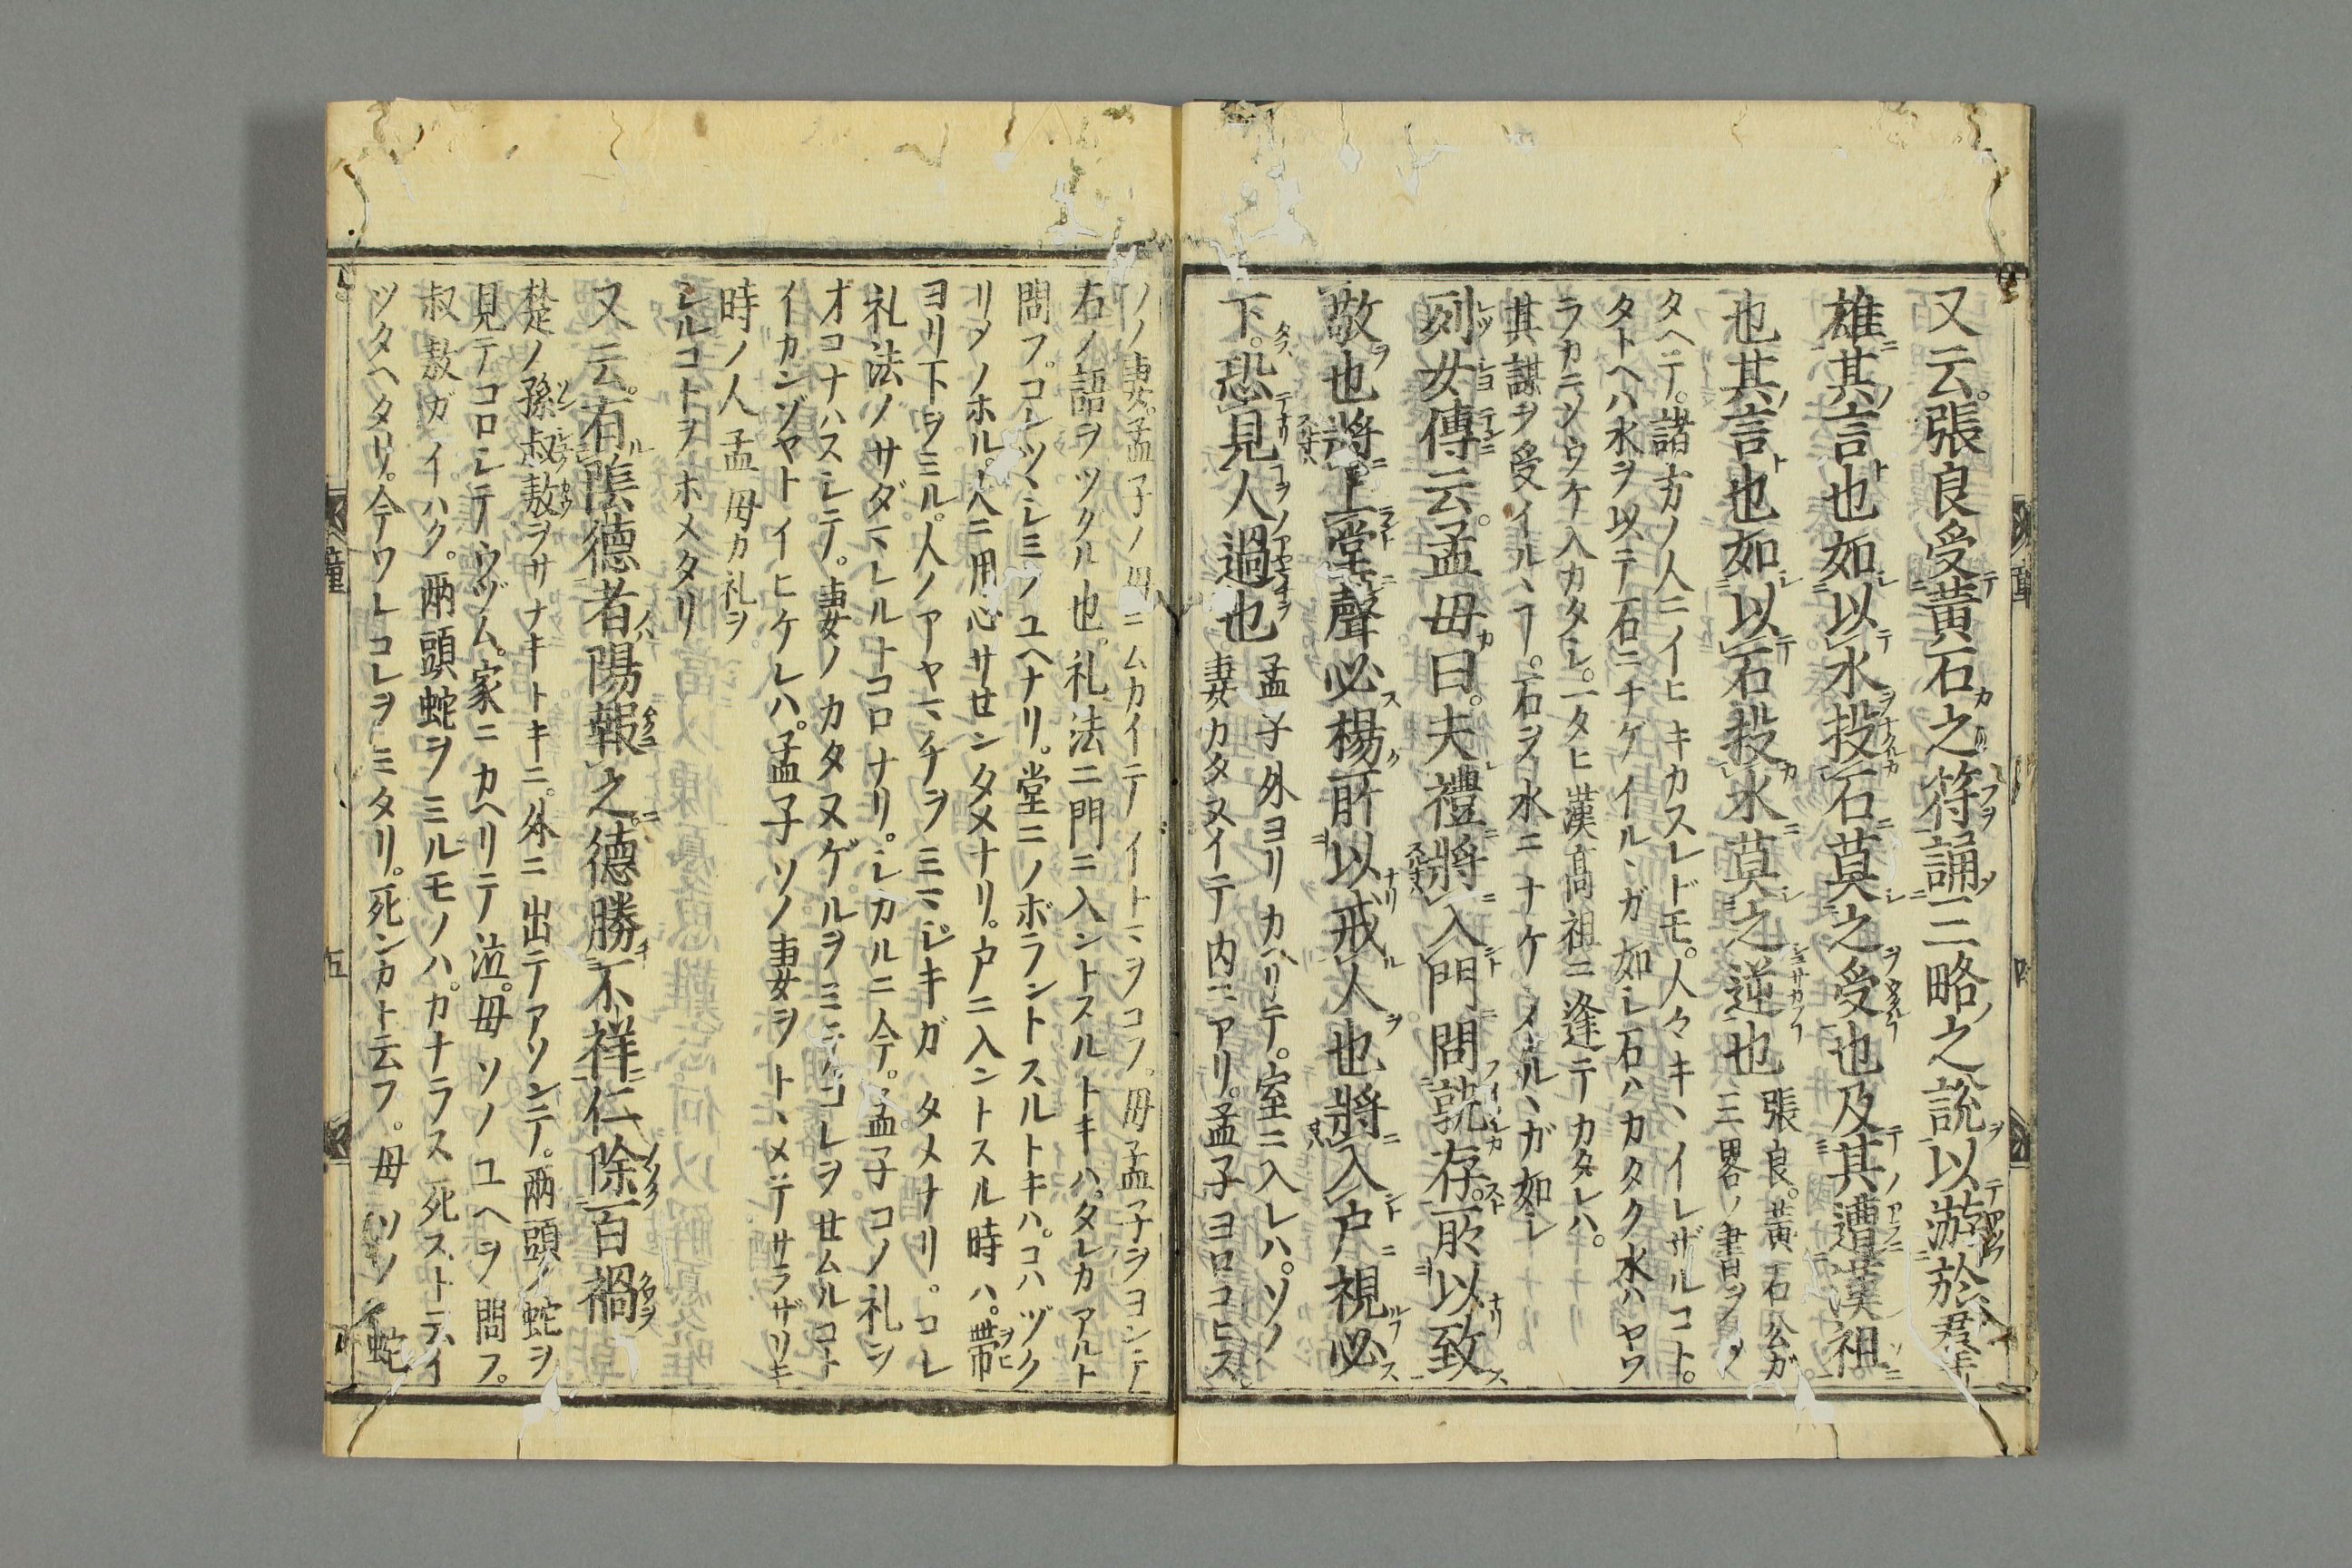 又云。張良受黄石之符誦三略之說以游於羣
雄其言也如以水投石莫之受也及其遭漢祖
也其言也如以石投水莫之逆也 張良。黄石公ガ
三畧ノ書ヲ
タヘテ。諸方ノ人ニイヒキカスレドモ。人々キヽイレザルコト。
タトヘハ水ヲ以テ石ニナゲイルヽガ如シ石ハカタク水ハヤワ
ラカニソウケ入カタシ。一タヒ漢高祖ニ逢テカタレハ。
其謀ヲ受イルヽ丁。石ヲ水ニナケシメルヽガ如シ
列女傳云。孟母曰。夫禮將入門問孰存。所以致
敬也將上堂聲必楊所以戒人也將入户視必
下。恐見人過也 孟子外ヨリカヘリテ。室ニ入レハ。ソノ
妻カタヌイテ内ニアリ。孟子ヨロコヒス
ソノ妻。孟子ノ母ニムカイテイトマヲコフ。母孟子ヲヨンテ
右ノ語ヲツクル也。礼法ニ門ニ入ントスルトキハ。タレカアルト
問フ。コレツヽシミノユヘナリ。堂ニノボラントスルトキハ。コハヅク
リシノホル。人ニ用心サセンタメナリ。户ニ入ントスル時ハ。帶
ヨリ下ヲミル。人ノアヤマチヲミマジキガタメナリ。コレ
礼法ノサダマレルトコロナリ。シカルニ今。孟子コノ礼ヲ
オコナハスシテ。妻ノカタヌゲルヲミテ。コレヲせムルコト
イカンゾヤトイヒケレハ。孟子ソノ妻ヲトヽメテサラザリキ
時ノ人孟母カ礼ヲ
シルコトヲホメタリ
又云。有隂德者陽報之。德勝不祥仁除百禍
楚ノ孫叔敖ヲサナキトキニ。外ニ出テアソンテ。兩頭ノ蛇ヲ
見テコロシテウヅム。家ニカヘリテ泣。母ソノユヘヲ問フ。
叔敖ガイハク。兩頭蛇ヲミルモノハ。カナラス死ストテイ
ツタヘタリ。今ワレコレヲミタリ。死ンカト云フ。母ソノ蛇